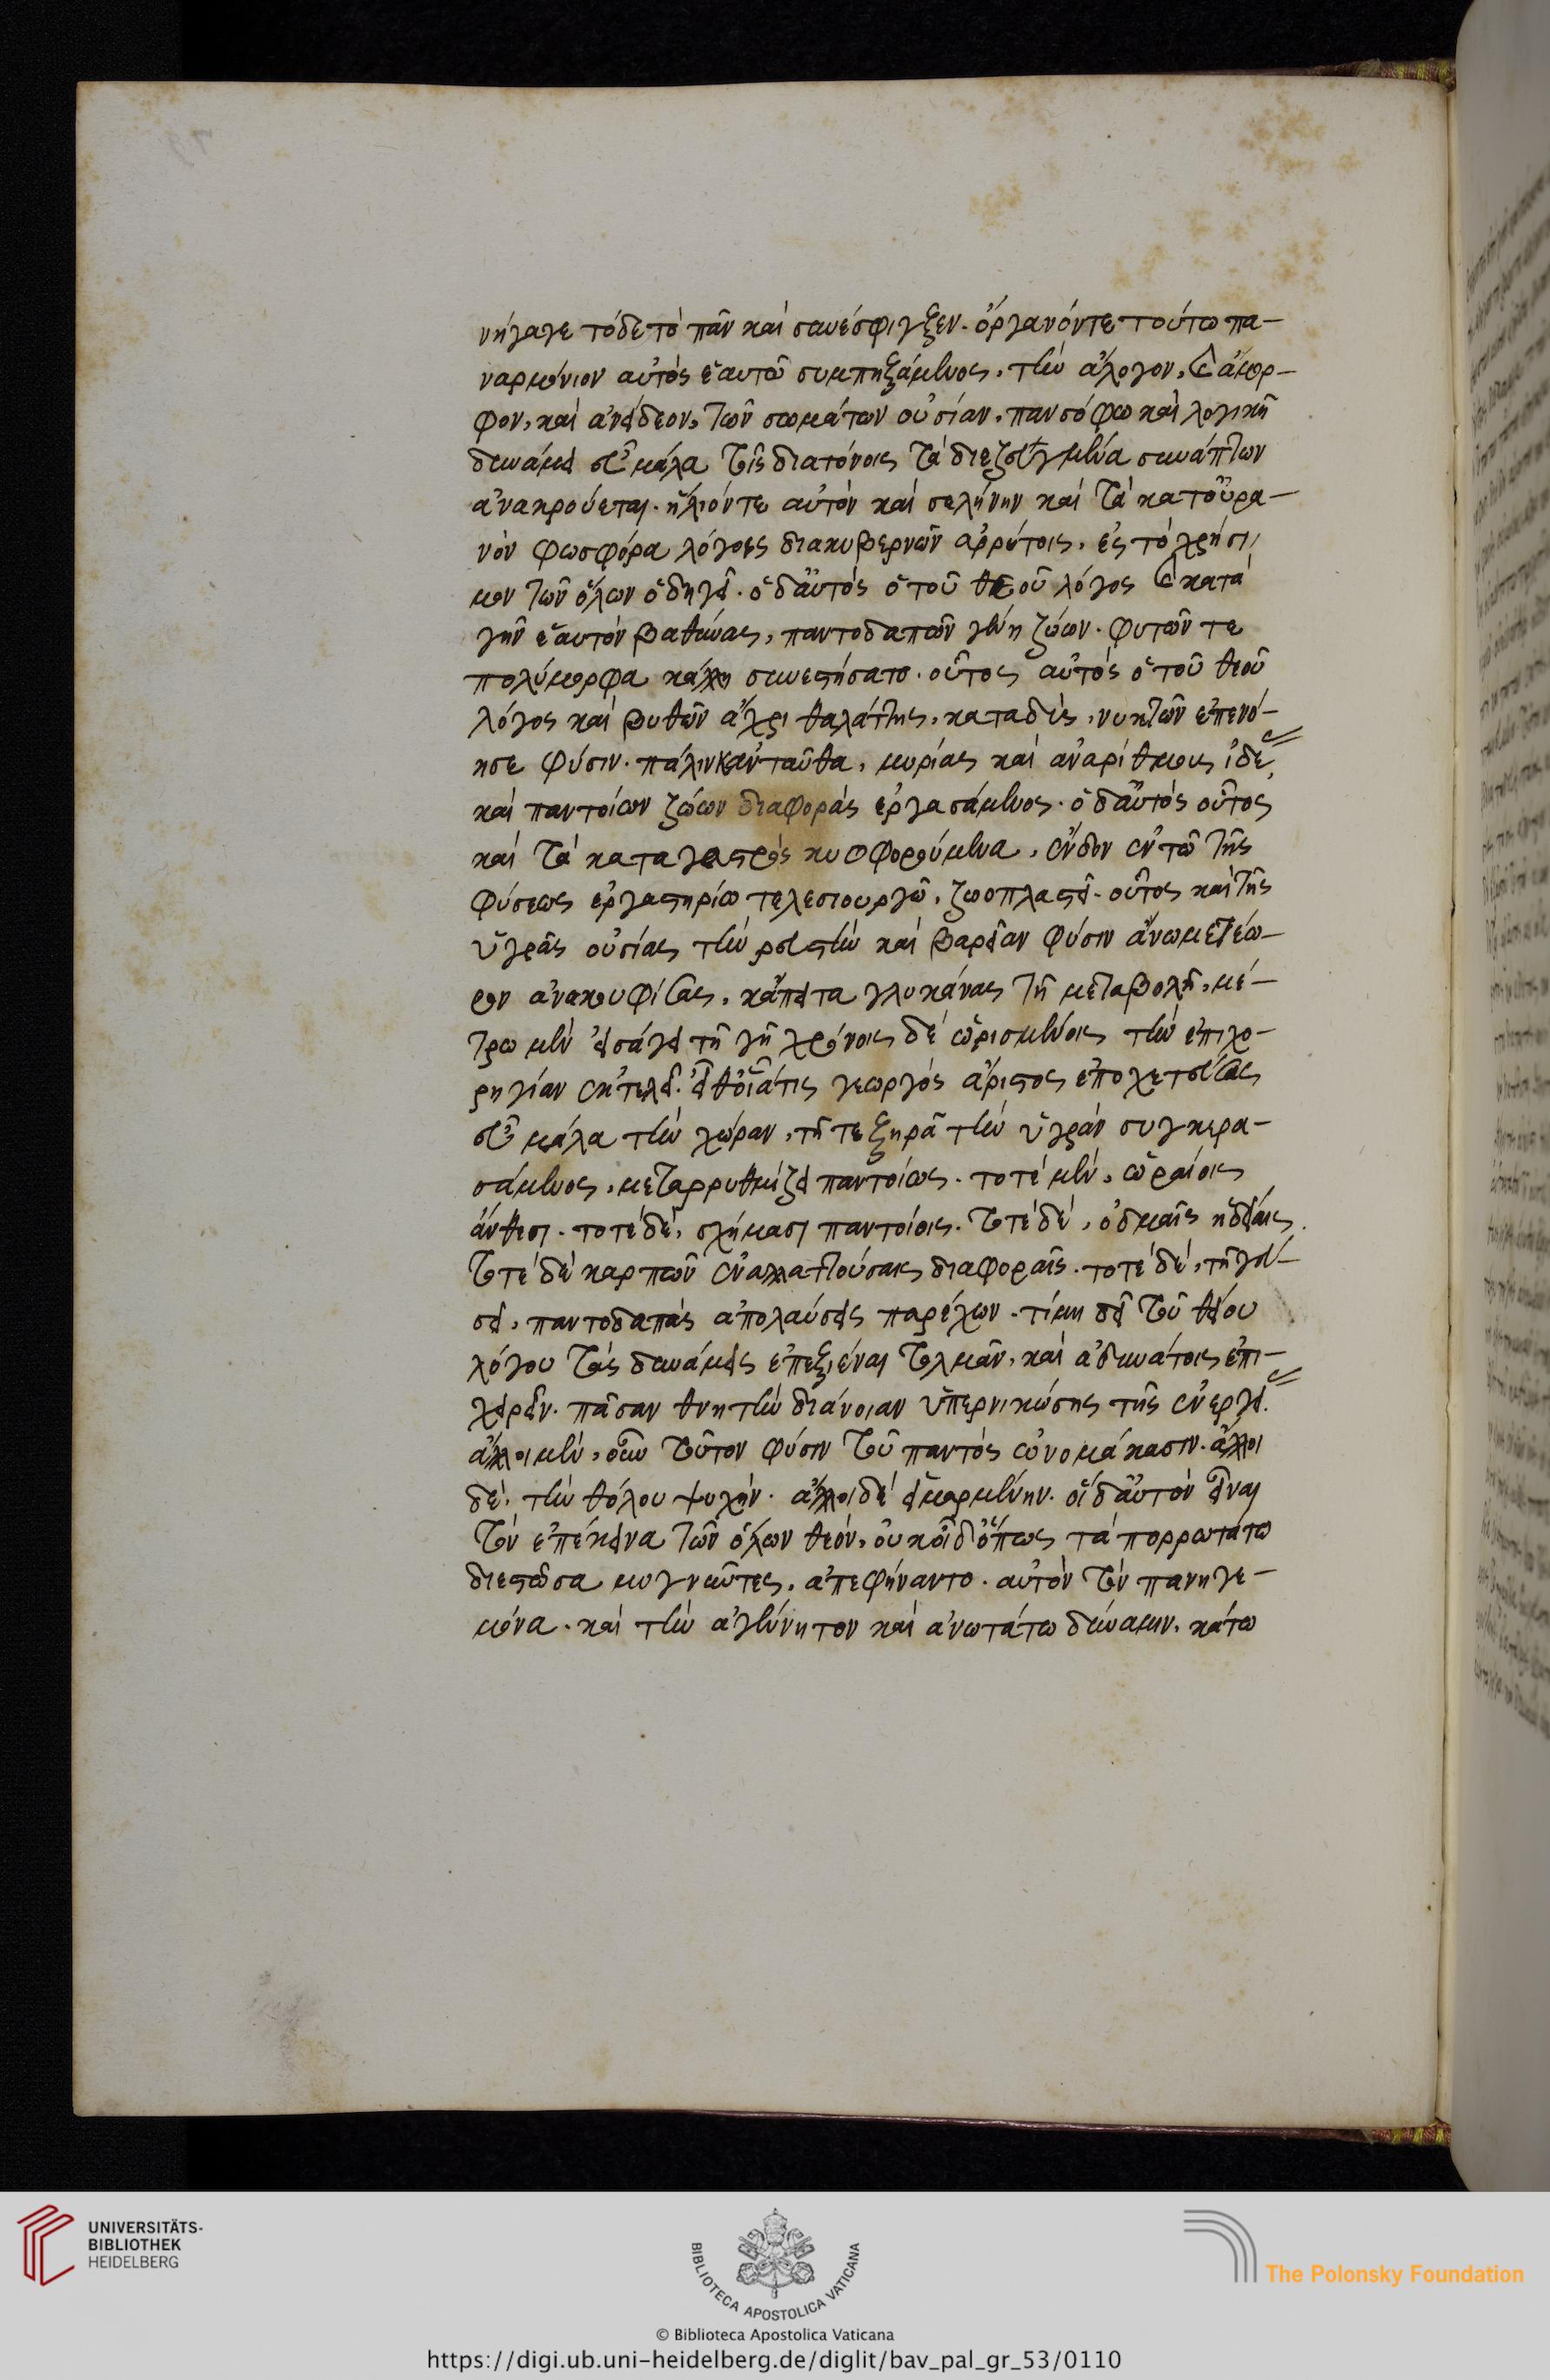 νήγαγε τόδε τὸ πᾶν καὶ συνέσφιγξεν. ὄργανόν τε τοῦτο πα-
ναρμόνιον αὐτὸς ἑαυτῶ συμπηξάμενος, τὴν ἄλογον, καὶ ἄμορ-
φον, καὶ ἀνείδεον, τῶν σωμάτων οὐσίαν, πανσόφω καὶ λογικῆ
δυνάμει εὖ μάλα τοῖς διατόνοις τὰ διεζευγμένα συνάπτων
ἀνακρούεται. ἥλιόν τε αὐτὸν καὶ σελήνην καὶ τὰ κατ' οὐρα-
νὸν φωσφόρα λόγοις διακυβερνῶν ἀρρήτοις, ἐς τὸ χρήσι-
μον τῶν ὅλων ὁδηγεῖ. ὁ δ' αὐτὸς ὁ τοῦ θεοῦ λόγος καὶ κατὰ
γῆν ἑαυτὸν βαθύνας, παντοδαπῶν γένη ζώων. φυτῶν τε
πολύμορφα κάλλη συνεστήσατο. οὗτος αὐτὸς ὁ τοῦ θεοῦ
λόγος καὶ βυθῶν ἄχρι θαλάττης, καταδὺς, νηκτῶν ἐπενό-
ησε φύσιν. πάλιν κἀνταῦθα, μυρίας καὶ ἀναρίθμους ἰδέ
καὶ παντοίων ζώων διαφορὰς ἐργασάμενος. ὁ δ' αὐτὸς οὗτος
καὶ τὰ κατὰ γαστρὸς κυοφορούμενα, ἔνδον ἐν τῶ τῆς
φύσεως ἐργαστηρίω τελεσιουργῶν, ζωοπλαστεῖ. οὗτος καὶ τῆς
ὑγρᾶς οὐσίας τὴν ῥευστὴν καὶ βαρεῖαν φύσιν ἄνω μετέω-
ρον ἀνακουφίσας, κἄπειτα γλυκάνας τῆ μεταβολῆ, μέ-
τρω μὲν εἰσάγει τῆ γῆ χρόνοις δὲ ὡρισμένοις τὴν ἐπιχο-
ρηγίαν ἐκτελεῖ. εἶθ' οἷά τις γεωργὸς ἄριστος ἐποχετεύσας
εὖ μάλα τὴν χώραν, τῆ τε ξηρᾶ τὴν ὑγρὰν συγκερα-
σάμενος, μεταρρυθμίζει παντοίως. τοτὲ μὲν, ὡραίοις
ἄνθεσι. τοτὲ δὲ, σχήμασι παντοίοις. τοτὲ δὲ, ὀδμαῖς ἡδείαις.
τοτὲ δὲ καρπῶν ἐναλλαττούσαις διαφοραῖς. τοτὲ δὲ, τῆ γεύ-
σει, παντοδαπὰς ἀπολαύσεις παρέχων. τί μη δεῖ τοῦ θείου
λόγου τὰς δυνάμεις ἐπεξιέναι τολμᾶν, καὶ ἀδυνάτοις ἐπι-
χειρεῖν. πᾶσαν θνητὴν διάνοιαν ὑπερνικώσης τῆς ἐνεργεί.
ἄλλοι μὲν, οὖν τοῦτον φύσιν τοῦ παντὸς ὠνομάκασιν. ἄλλοι
δὲ, τὴν θ' ὅλου ψυχὴν. ἄλλοι δὲ εἱμαρμένην. οἱ δ' αὐτὸν εἶναι
τὸν ἐπέκεινα τῶν ὅλων θεόν, οὐκ οἶδ' ὅπως τὰ πορρωτάτω
διεστῶσα μιγνῦντες, ἀπεφήναντο. αὐτὸν τὸν πανηγε-
μόνα. καὶ τὴν ἀγένητον καὶ ἀνωτάτω δύναμιν, κάτω
UNIVERSITÄTS-
BIBLIOTHEK
HEIDELBERG
BIBLIOTECA APOSTOLICA VATICANA
The Polonsky Foundation
© Biblioteca Apostolica Vaticana
https://digi.ub.uni-heidelberg.de/diglit/bav_pal_gr_53/0110